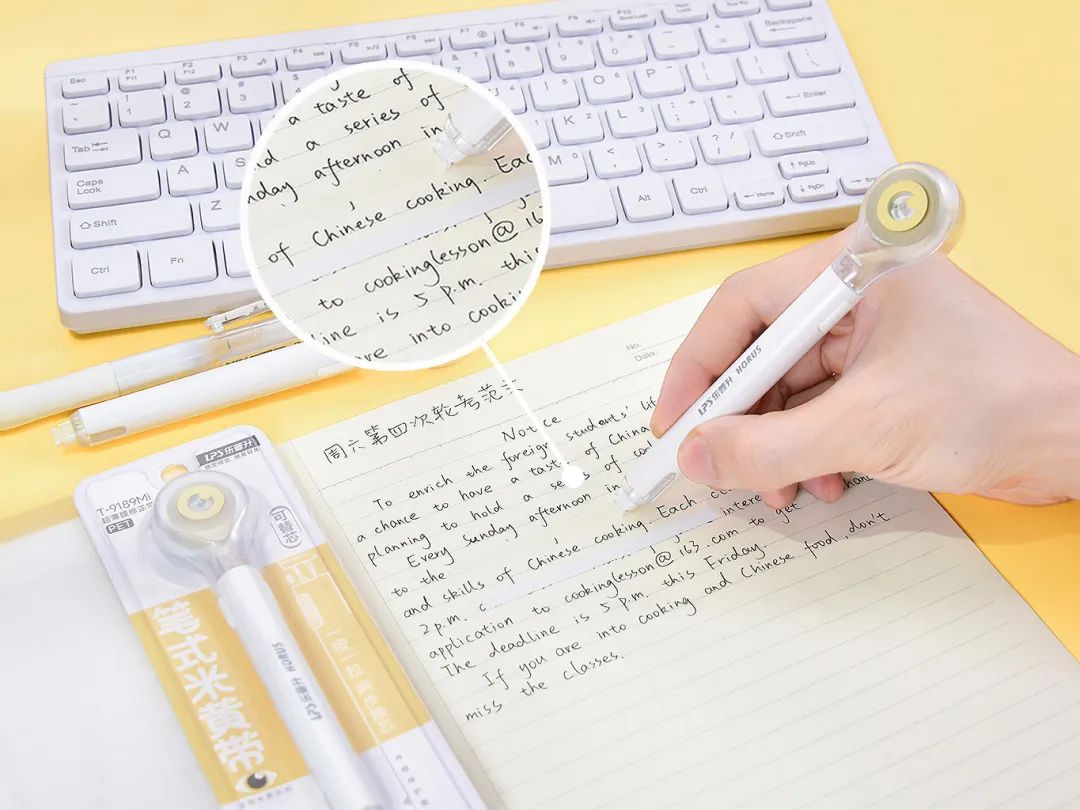 Esc
F1
F11
F2
F12
F3
F4
F5
F6
F7
F8
F9
F10
Scroll Lock
Num Lock
Backspace
Tab
Q
W
O
P
Enter
Caps Lock
A
S
K
L
Shift
Z
M
Shift
PgUp
Ctrl
Fn
Alt
Ctrl
Home
PgDn
a taste of
a series of
day afternoon in
of Chinese cooking. Eac
to cookinglesson@163
line is 5 p.m. this
re into cooki
No.
Date.
周六第四次轮考范文
Notice
To enrich the foreign students' lif
chance to have a taste of China
planning to hold a se of
Every Sunday afternoon in
to the
and skills of Chinese cooking. Each
2 p.m.
application to cookinglesson@163.com to get
The deadline is 5 p.m. this Friday.
If you are into cooking and Chinese food, don't
miss the classes.
LPS乐普升 HORUS
LPS乐普升
T-9189Mi
PET
可替芯
LPS乐普升 HORUS